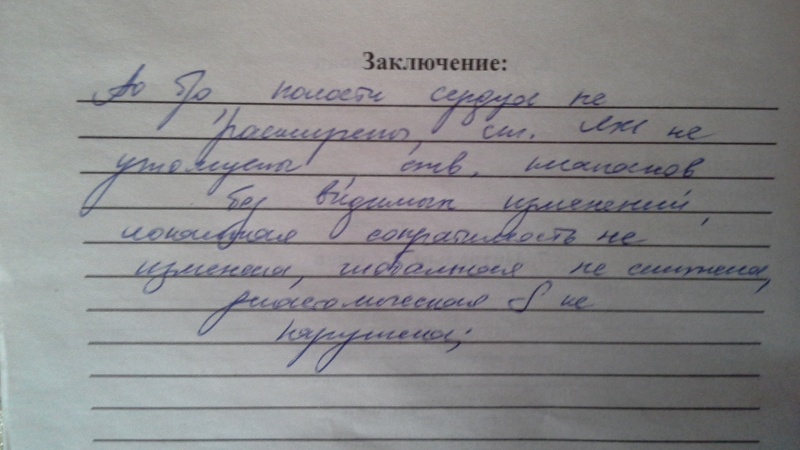 Заключение:
Ао б/о полости сердца не
расширены, ст. ЛЖ не
утолщены, ств. клапанов
без видимых изменений,
локальная сократимость не
изменена, глобальная не снижена,
диастолическая f не
нарушена;